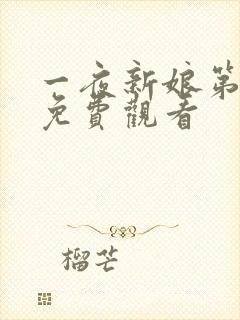 一夜新娘第
免費觀看
榴芒